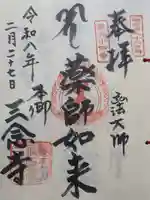 奉拝
弘法大師
薬師如来
本御
三念寺
令和八年
二月二十七日